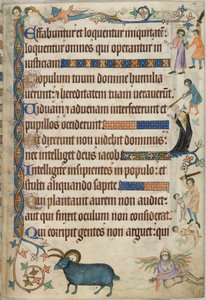 Effabuntur et loquentur iniquitatem:
loquentur omnes qui operantur in
iusticiam
Populum tuum domine humilia
uerunt: et hereditatem tuam uexauerunt
Uiduam et aduenam interfecerunt et
pupillos occiderunt
Et dixerunt non uidebit dominus:
nec intelliget deus iacob
Intelligite insipientes in populo: et
stulti aliquando sapite
Qui plantauit aurem non audiet:
aut qui finxit oculum non considerat
Qui corripit gentes non arguet: qui